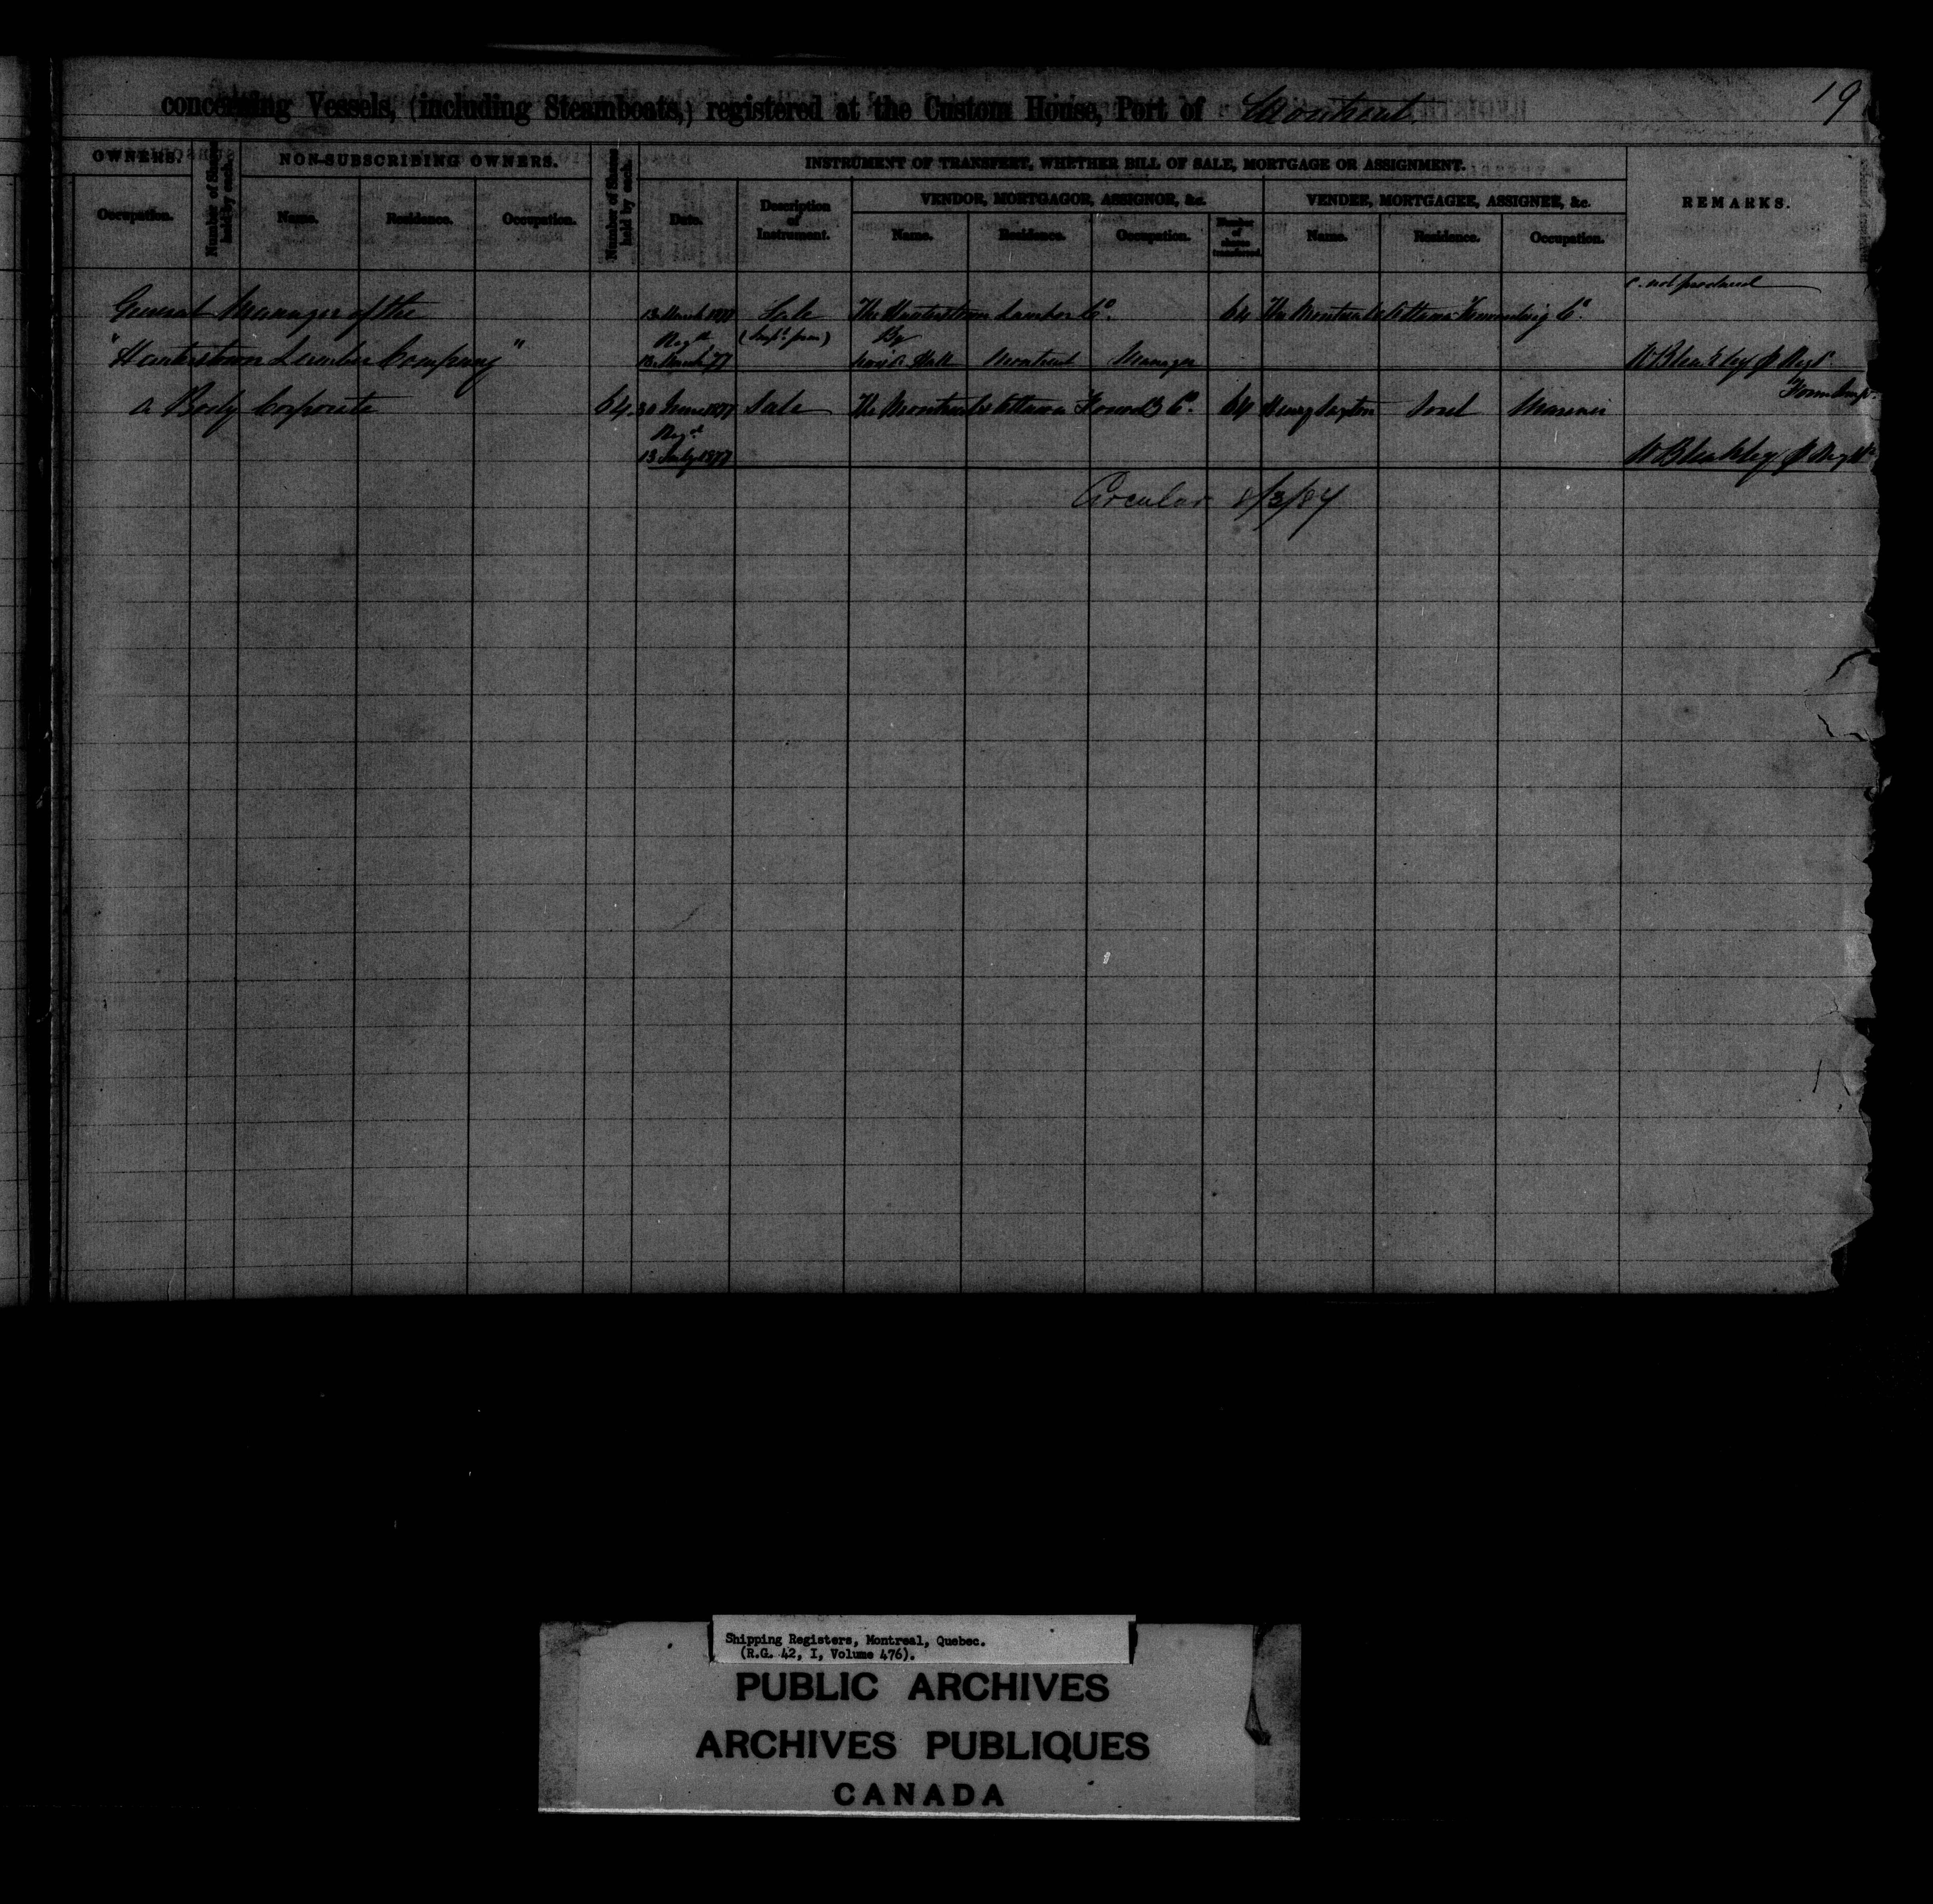 19
concerning Vessels, (including Steamboats,) registered at the Custom House, Port of Montreal.
OWNERS. Number of Shares held by each. NON-SUBSCRIBING OWNERS. Number of Shares held by each. INSTRUMENT OF TRANSFERT, WHETHER BILL OF SALE, MORTGAGE OR ASSIGNMENT. REMARKS.
VENDOR, MORTGAGOR, ASSIGNOR, &c. VENDEE, MORTGAGEE, ASSIGNEE, &c.
Occupation. Name. Residence. Occupation. Date. Description of Instrument. Name. Residence. Occupation. Number of shares transferred. Name. Residence. Occupation.
not produced
General Manager of the 13 March 1877 Sale The Hunterstown Lumber Co. 64 The Montreal & Ottawa Forwarding Co.
Regd By
"Hunterstown Lumber Company" 13 March 77 Hall Montreal Manager W Bleakley Regr
a Body Corporate 64 30 June 1877 Sale The Montreal & Ottawa Forwdg Co. 64 Henry Sorel Mariner
Regd
13 July 1877 W Bleakley
Circular 8/3/84
Shipping Registers, Montreal, Quebec.
(R.G. 42, I, Volume 476).
PUBLIC ARCHIVES
ARCHIVES PUBLIQUES
CANADA